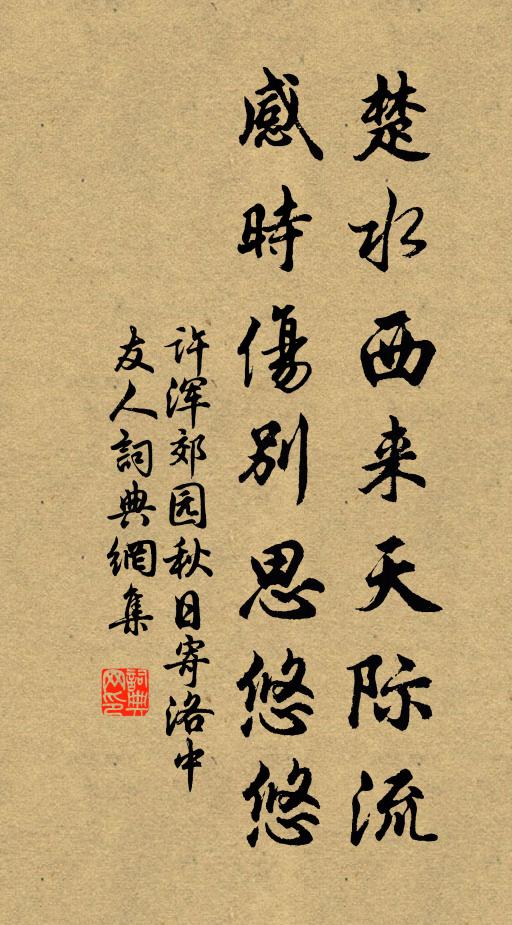 楚水西来天际流
感時傷别思悠悠
许浑郊园秋日寄洛中
友人詞典網集
詞典网印